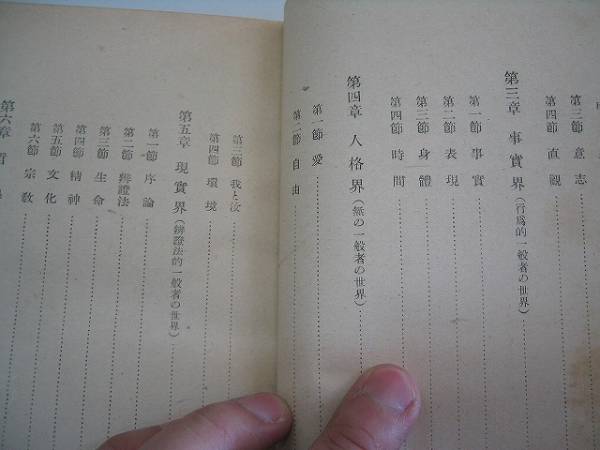 第三節 意志
第四節 直觀
第三章 事實界(行爲的一般者の世界)
第一節 事實
第二節 表現
第三節 身體
第四節 時間
第四章 人格界(無の一般者の世界)
第一節 愛
第二節 自由
第三節 我と汝
第四節 環境
第五章 現實界(辨證法的一般者の世界)
第一節 序論
第二節 辨證法
第三節 生命
第四節 精神
第五節 文化
第六節 宗教
第六章